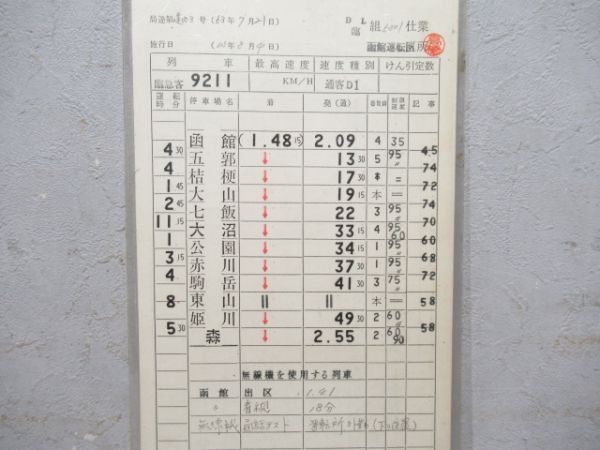 局達第 運43 号 (63年7月21日) D L 臨 組 6001 仕業
施行日 (63年8月 日) 函館運転区
列 車 最高速度 速度種別 けん引定数
臨急客 9211 KM/H 通客D1
運転時分 停車場名 着 発(通) 着発線 制限速度 記事
函館 (1.48 15) 2.09 4 35
4 30 五郭 ↓ 13 30 5 95 45
4 桔梗 ↓ 17 30 〃 = 74
1 45 大山 ↓ 19 15 本 = 72
2 45 七飯 ↓ 22 3 95 74
11 15 大沼 ↓ 33 15 4 95 60 70
1 公園 ↓ 34 15 1 95 60
3 15 赤川 ↓ 37 30 1 95 68
4 駒岳 ↓ 41 30 3 75 72
8 東山 || || 本 = 58
姫川 ↓ 49 30 2 60
5 30 森 ↓ 2.55 2 60 90 58
無線機を使用する列車
函館 出区 1.41
〃 18分